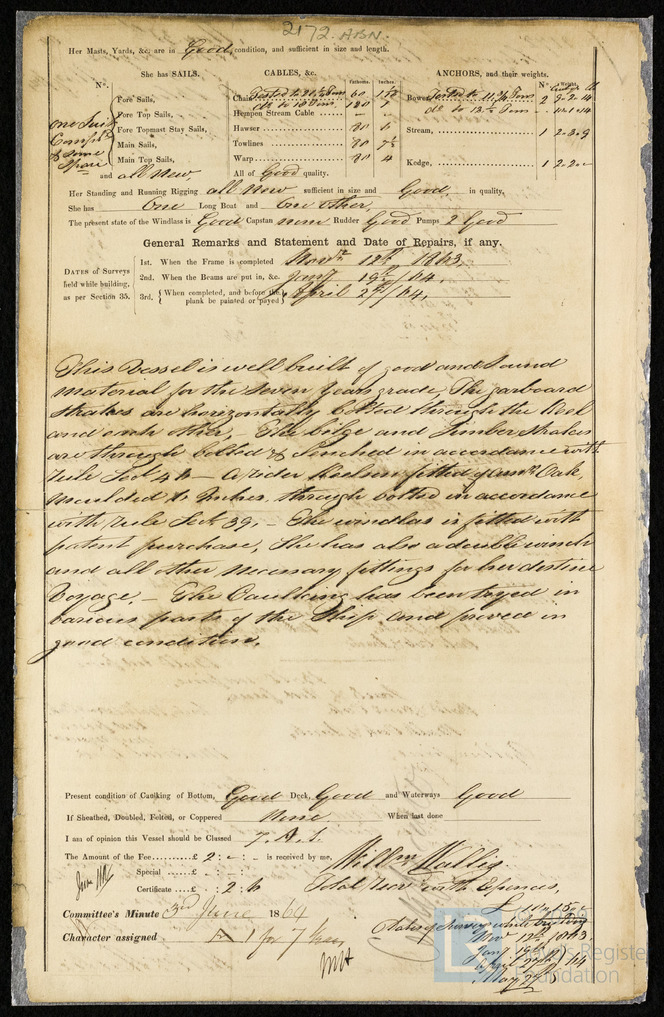 2172. ABN.
Her Masts, Yards, &c, are in Good condition, and sufficient in size and length.
She has SAILS. CABLES, &c. ANCHORS, and their weights.
Nº. Fathoms. Inches. Nº. Weight.
Fore Sails, Chain 60 Bower 2
One Suit Fore Top Sails, Hempen Stream Cable — —
Compl Fore Topmast Stay Sails, Hawser Stream, 1
& some Main Sails, Towlines
Spare Main Top Sails, Warp Kedge, 1
and all New All of Good quality.
Her Standing and Running Rigging all New sufficient in size and Good in quality.
She has One Long Boat and One other
The present state of the Windlass is Good Capstan none Rudder Good Pumps 2 Good
General Remarks and Statement and Date of Repairs, if any.
DATES of Surveys held while building, as per Section 35.
1st. When the Frame is completed Novr 12th 1863,
2nd. When the Beams are put in, &c. Jany 19th /64,
3rd. { When completed, and before the plank be painted or payed } April 27th /64,
This Vessel is well built of good and Sound
material for the Seven Years grade, The garboard
Strakes are horizontally bolted through the Keel
and each other, The bilge and Limber Strakes
are through bolted & Clinched in accordance with
Rule Sect 40 — A rider Keelson fitted of Amn Oak,
moulded inches, through bolted in accordance
with rule Sect. 39, — The windlas is fitted with
patent purchase, She has also a double winch
and all other necessary fittings for her destine
Voyage. — The Caulking has been tryed in
Various parts of the Ship and proved in
good condition.
Present condition of Caulking of Bottom, Good Deck, Good and Waterways Good
If Sheathed, Doubled, Felted, or Coppered None When last done
I am of opinion this Vessel should be Classed 7. A. 1.
The Amount of the Fee......£ 2 : - : - is received by me,
Special .. £ . : - : -
Willm Wallis.
Certificate .. £ . : 2. 6
Committee's Minute 3rd June 1864
Character assigned A 1 for 7 Years
Dates of Survey while building
Novr 12th /63,
Jany 19th
April 27th /64
May 27th
Lloyd's Register
Foundation